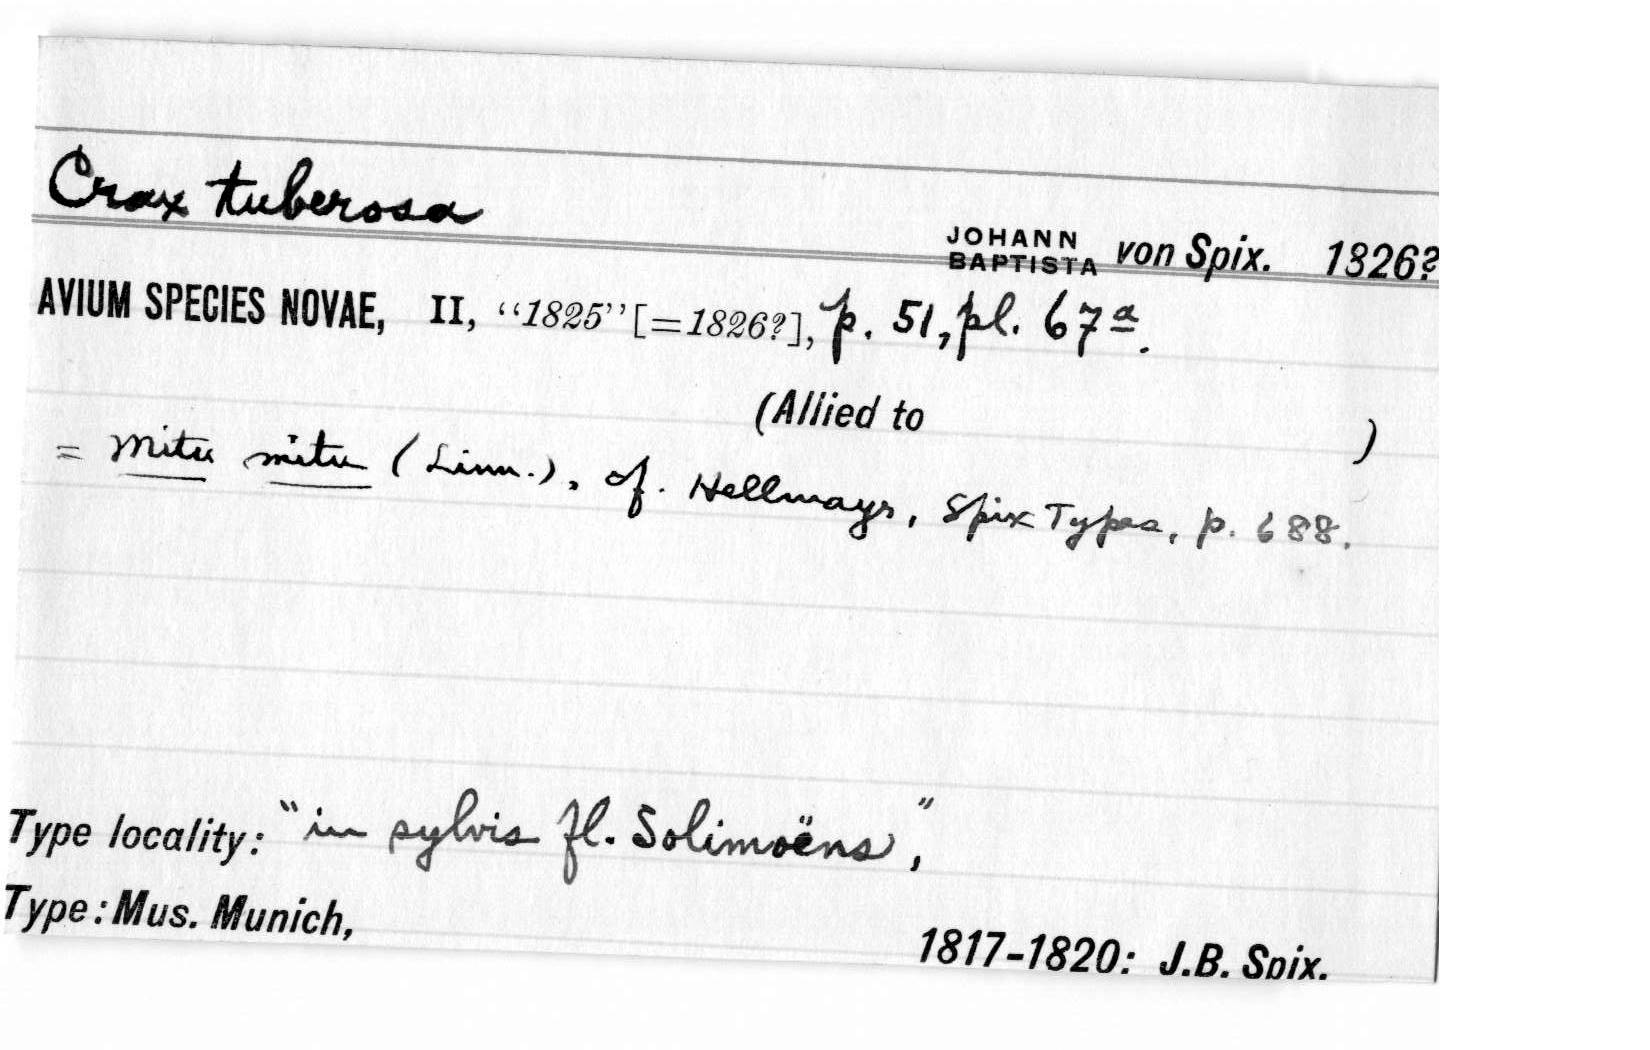 Crax tuberosa
JOHANN BAPTISTA von Spix. 1826?
AVIUM SPECIES NOVAE, II, "1825" [=1826?], p. 51, pl. 67a.
(Allied to )
= Mitu mitu (Linn.), cf. Hellmayr, Spix Types, p. 688.
Type locality: "in sylvis fl. Solimoëns,"
Type: Mus. Munich,
1817-1820: J.B. Spix.